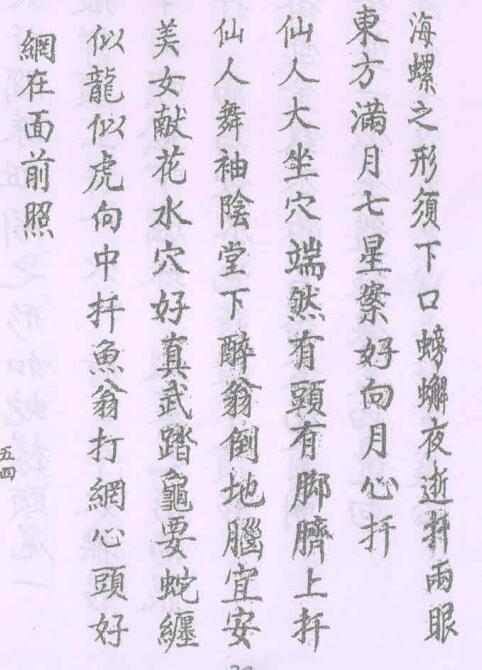 海螺之形須下口螃蠏夜逝扦兩眼
東方滿月七星案好向月心扦
仙人大坐穴端然有頭有脚臍上扦
仙人舞袖陰堂下醉翁倒地腦宜安
美女献花水穴好真武踏龜要蛇纏
似龍似虎向中扦魚翁打網心頭好
網在面前照
五四